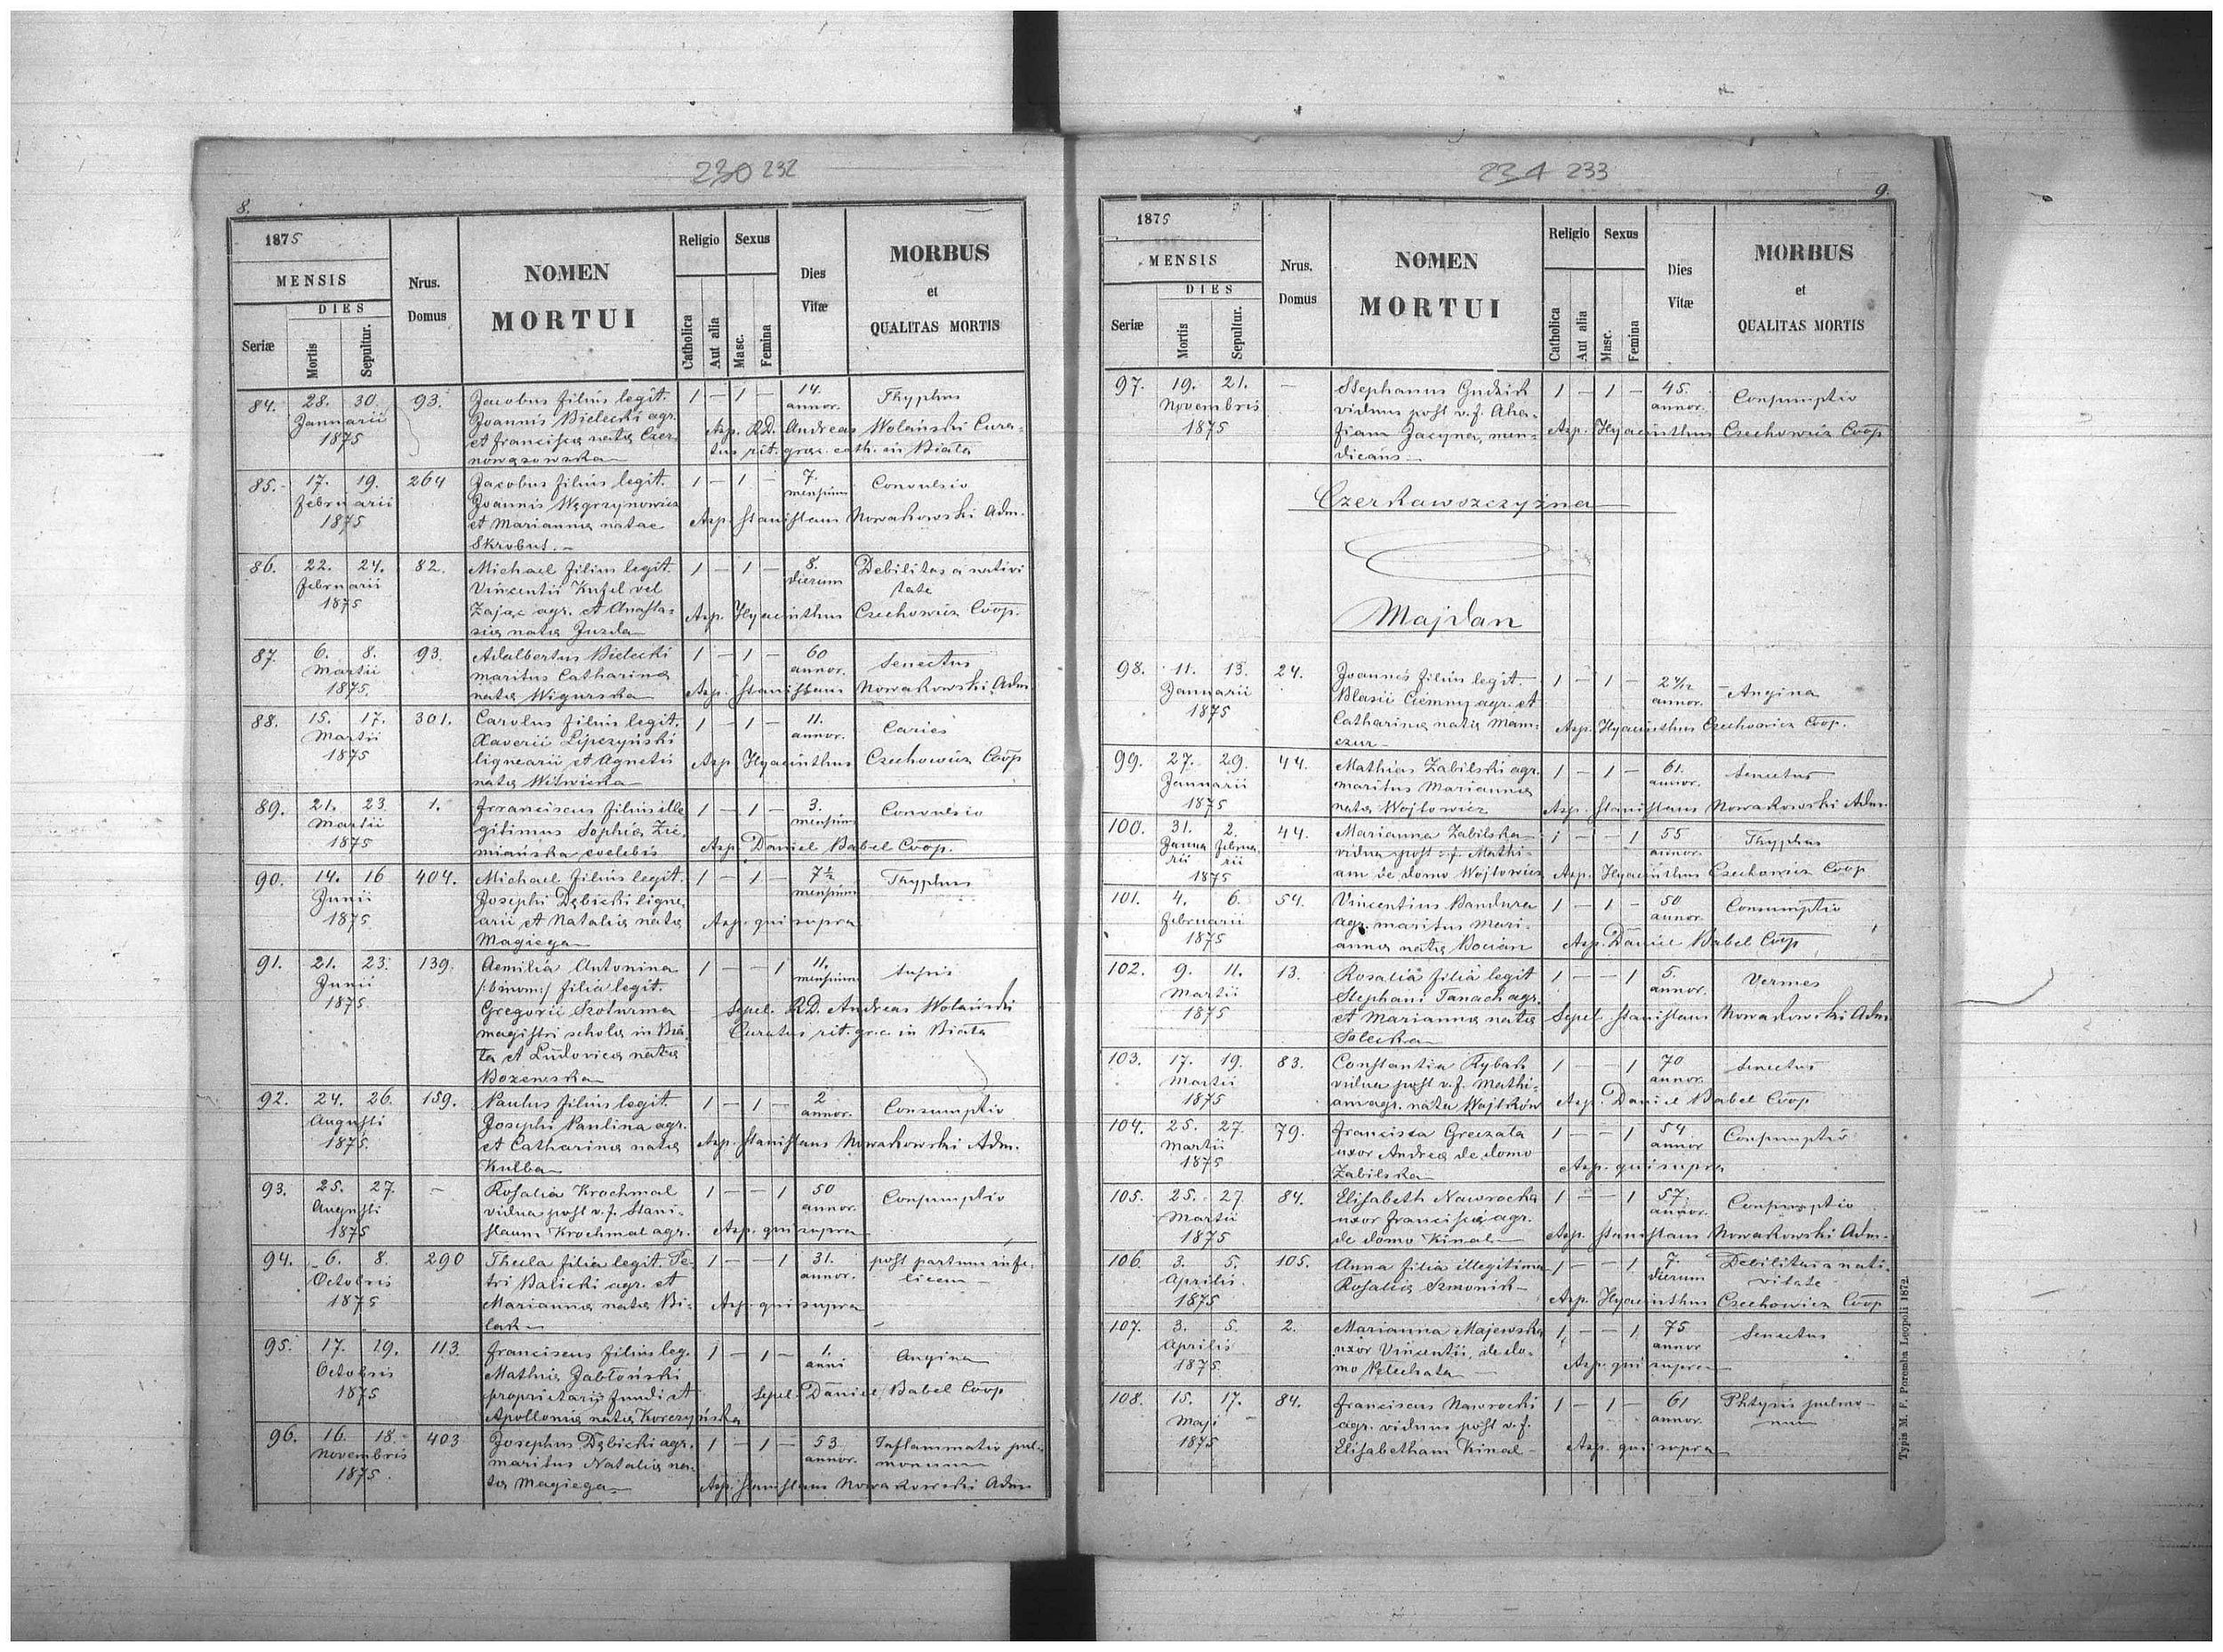 230 232
8.
1875
MENSIS
DIES
Seriæ
Mortis
Sepultur.
Nrus.
Domus
NOMEN
MORTUI
Religio
Catholica
Aut alia
Sexus
Masc.
Femina
Dies
Vitæ
MORBUS
et
QUALITAS MORTIS
84. 28. 30. 93. Jacobus filius legit. 1 — 1 — 14. Thyphus
Januarii Joannis Bielecki agr. annor.
1875 et Francisca nata Czer- Asp. RD. Andreas Wolański Cura-
nowąsowska tus rit. græc. cath. in Biała
85. 17. 19. 264 Jacobus filius legit. 1 — 1 — 7. Convulsio
Februarii Joannis Węgrzynowicz mensium
1875 et Marianna natae Asp. Stanislaus Nowakowski Adm.
Skrobut.
86. 22. 24. 82. Michael filius legit. 1 — 1 — 8. Debilitas a nativi
Februarii Vincentii Kufel vel dierum tate
1875 Zając agr. et Anasta- Asp. Hyacinthus Czechowicz Coop.
sia nata Juzda
87. 6. 8. 93. Adalbertus Bielecki 1 — 1 — 60 Senectus
Martii maritus Catharina annor.
1875. nata Wigurska Asp. Stanislaus Nowakowski Adm.
88. 15. 17. 301. Carolus filius legit. 1 — 1 — 11. Caries
Martii Xaverii Lipczyński annor.
1875 lignearii et Agnetis Asp. Hyacinthus Czechowicz Coop
nata Wiśnicka
89. 21. 23. 1. Franciscus filius ille 1 — 1 — 3. Convulsio
Martii gitimus Sophia Zie mensium
1875 miańska coelebis Asp. Daniel Babel Coop.
90. 14. 16 404. Michael filius legit. 1 — 1 — 7½ Thyphus
Junii Josephi Dębicki ligne mensium
1875 arii et Natalia nata Asp. qui supra
Magiega
91. 21. 23. 139. Aemilia Antonina 1 — — 1 11. tussis
Junii /:binom:/ filia legit. mensium
1875 Gregorii Szoturma Sepel. RD. Andreas Wolański
magistri schola in Bia Curatus rit. g.c. in Biała
ła et Ludovica nata
Bozewska
92. 24. 26. 159. Paulus filius legit. 1 — 1 — 2 Consumptio
Augusti Josephi Paulina agr. annor.
1875. et Catharina nata Asp. Stanislaus Nowakowski Adm.
Kulba
93. 25. 27. — Rosalia Krochmal 1 — — 1 50 Consumptio
Augusti vidua post v. f. Stani- annor.
1875 slaum Krochmal agr. Asp. qui supra
94. 6. 8. 290 Thecla filia legit. Pe- 1 — — 1 31. post partum infe-
Octobris tri Balicki agr. et annor. licem
1875 Marianna nata Bi- Asp. qui supra
lak
95. 17. 19. 113. Franciscus filius leg. 1 — 1 — 1. Angina
Octobris Mathia Jabłoński anni
1875 proprietarii fundi et Sepel. Daniel Babel Coop
Apollonia nata Korczyńska
96. 16. 18. 403 Josephus Dębicki agr. 1 — 1 — 53 Inflammatio pul-
Novembris maritus Natalia na- annor. monum
1875. ta Magiega Asp. Stanislaus Nowakowski Adm
234 233
9.
1875
MENSIS
DIES
Seriæ
Mortis
Sepultur.
Nrus.
Domus
NOMEN
MORTUI
Religio
Catholica
Aut alia
Sexus
Masc.
Femina
Dies
Vitæ
MORBUS
et
QUALITAS MORTIS
97. 19. 21. — Stephanus Gudzik 1 — 1 — 45. Consumptio
Novembris viduus post v. f. Aha- annor.
1875 fiam Jacyna, men- Asp. Hyacinthus Czechowicz Coop
dicans
Czerkawszczyzna
Majdan
98. 11. 13. 24. Joannes filius legit. 1 — 1 — 2 4/12 Angina
Januarii Blasii Ciemny agr. et annor.
1875 Catharina nata Mam- Asp. Hyacinthus Czechowicz Coop.
czur
99. 27. 29. 44. Mathias Zabilski agr. 1 — 1 — 61. Senectus
Januarii maritus Marianna annor.
1875 nata Wojtowicz Asp. Stanislaus Nowakowski Adm.
100. 31. 2. 44. Marianna Zabilska 1 — — 1 55 Thyphus
Janua Februa vidua post v. f. Mathi- annor.
rii rii am de domo Wojtowicz Asp. Hyacinthus Czechowicz Coop
1875
101. 4. 6. 54. Vincentius Bandura 1 — 1 — 50 Consumptio
Februarii agr. maritus Mari- annor.
1875 anna nata Bocian Asp. Daniel Babel Coop
102. 9. 11. 13. Rosalia filia legit 1 — — 1 5. Vermes
Martii Stephani Tanach agr. annor.
1875 et Marianna nata Sepel. Stanislaus Nowakowski Adm
Solecka
103. 17. 19. 83. Constantia Rybak 1 — — 1 70 Senectus
Martii vidua post v. f. Mathi- annor
1875 am agr. nata Wojtków Asp. Daniel Babel Coop
104. 25. 27. 79. Francisca Greczała 1 — — 1 54 Consumptio
Martii uxor Andrea de domo annor
1875 Zabilska Asp. qui supra
105. 25. 27. 84. Elisabeth Nawrocka 1 — — 1 57. Consumptio
Martii uxor Francisci agr. annor.
1875 de domo Kinal Asp. Stanislaus Nowakowski Adm.
106. 3. 5. 105. Anna filia illegitima 1 — — 1 7. Debilitas a nati-
Aprilis Rosalia Szmonik dierum vitate
1875 Asp. Hyacinthus Czechowicz Coop
107. 3. 5. 2. Marianna Majewska 1 — — 1 75 Senectus
Aprilis uxor Vincentii, de do- annor
1875 mo Petechata Asp. qui supra
108. 15. 17. 84. Franciscus Nawrocki 1 — 1 — 61 Phtysis pulmo-
Maji agr. viduus post v. f. annor. num
1875 Elisabetham Kinal Asp. qui supra
Typis M. F. Poremba Leopoli 1872.